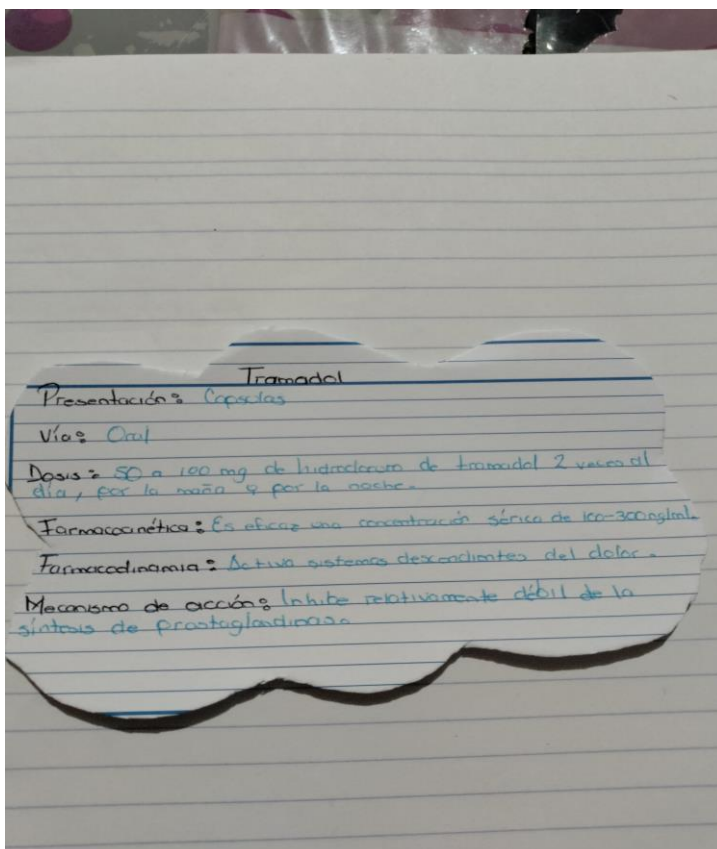 Tramadol
Presentación: Capsulas
Vía: Oral
Dosis: 50 a 100 mg de hidrocloruro de tramadol 2 veces al
día, por la maña y por la noche.
Farmacocinética: Es eficaz una concentración sérica de 100-300ng/ml.
Farmacodinamia: Activa sistemas descendientes del dolor.
Mecanismo de acción: Inhibe relativamente débil de la
síntesis de prostaglandinas.